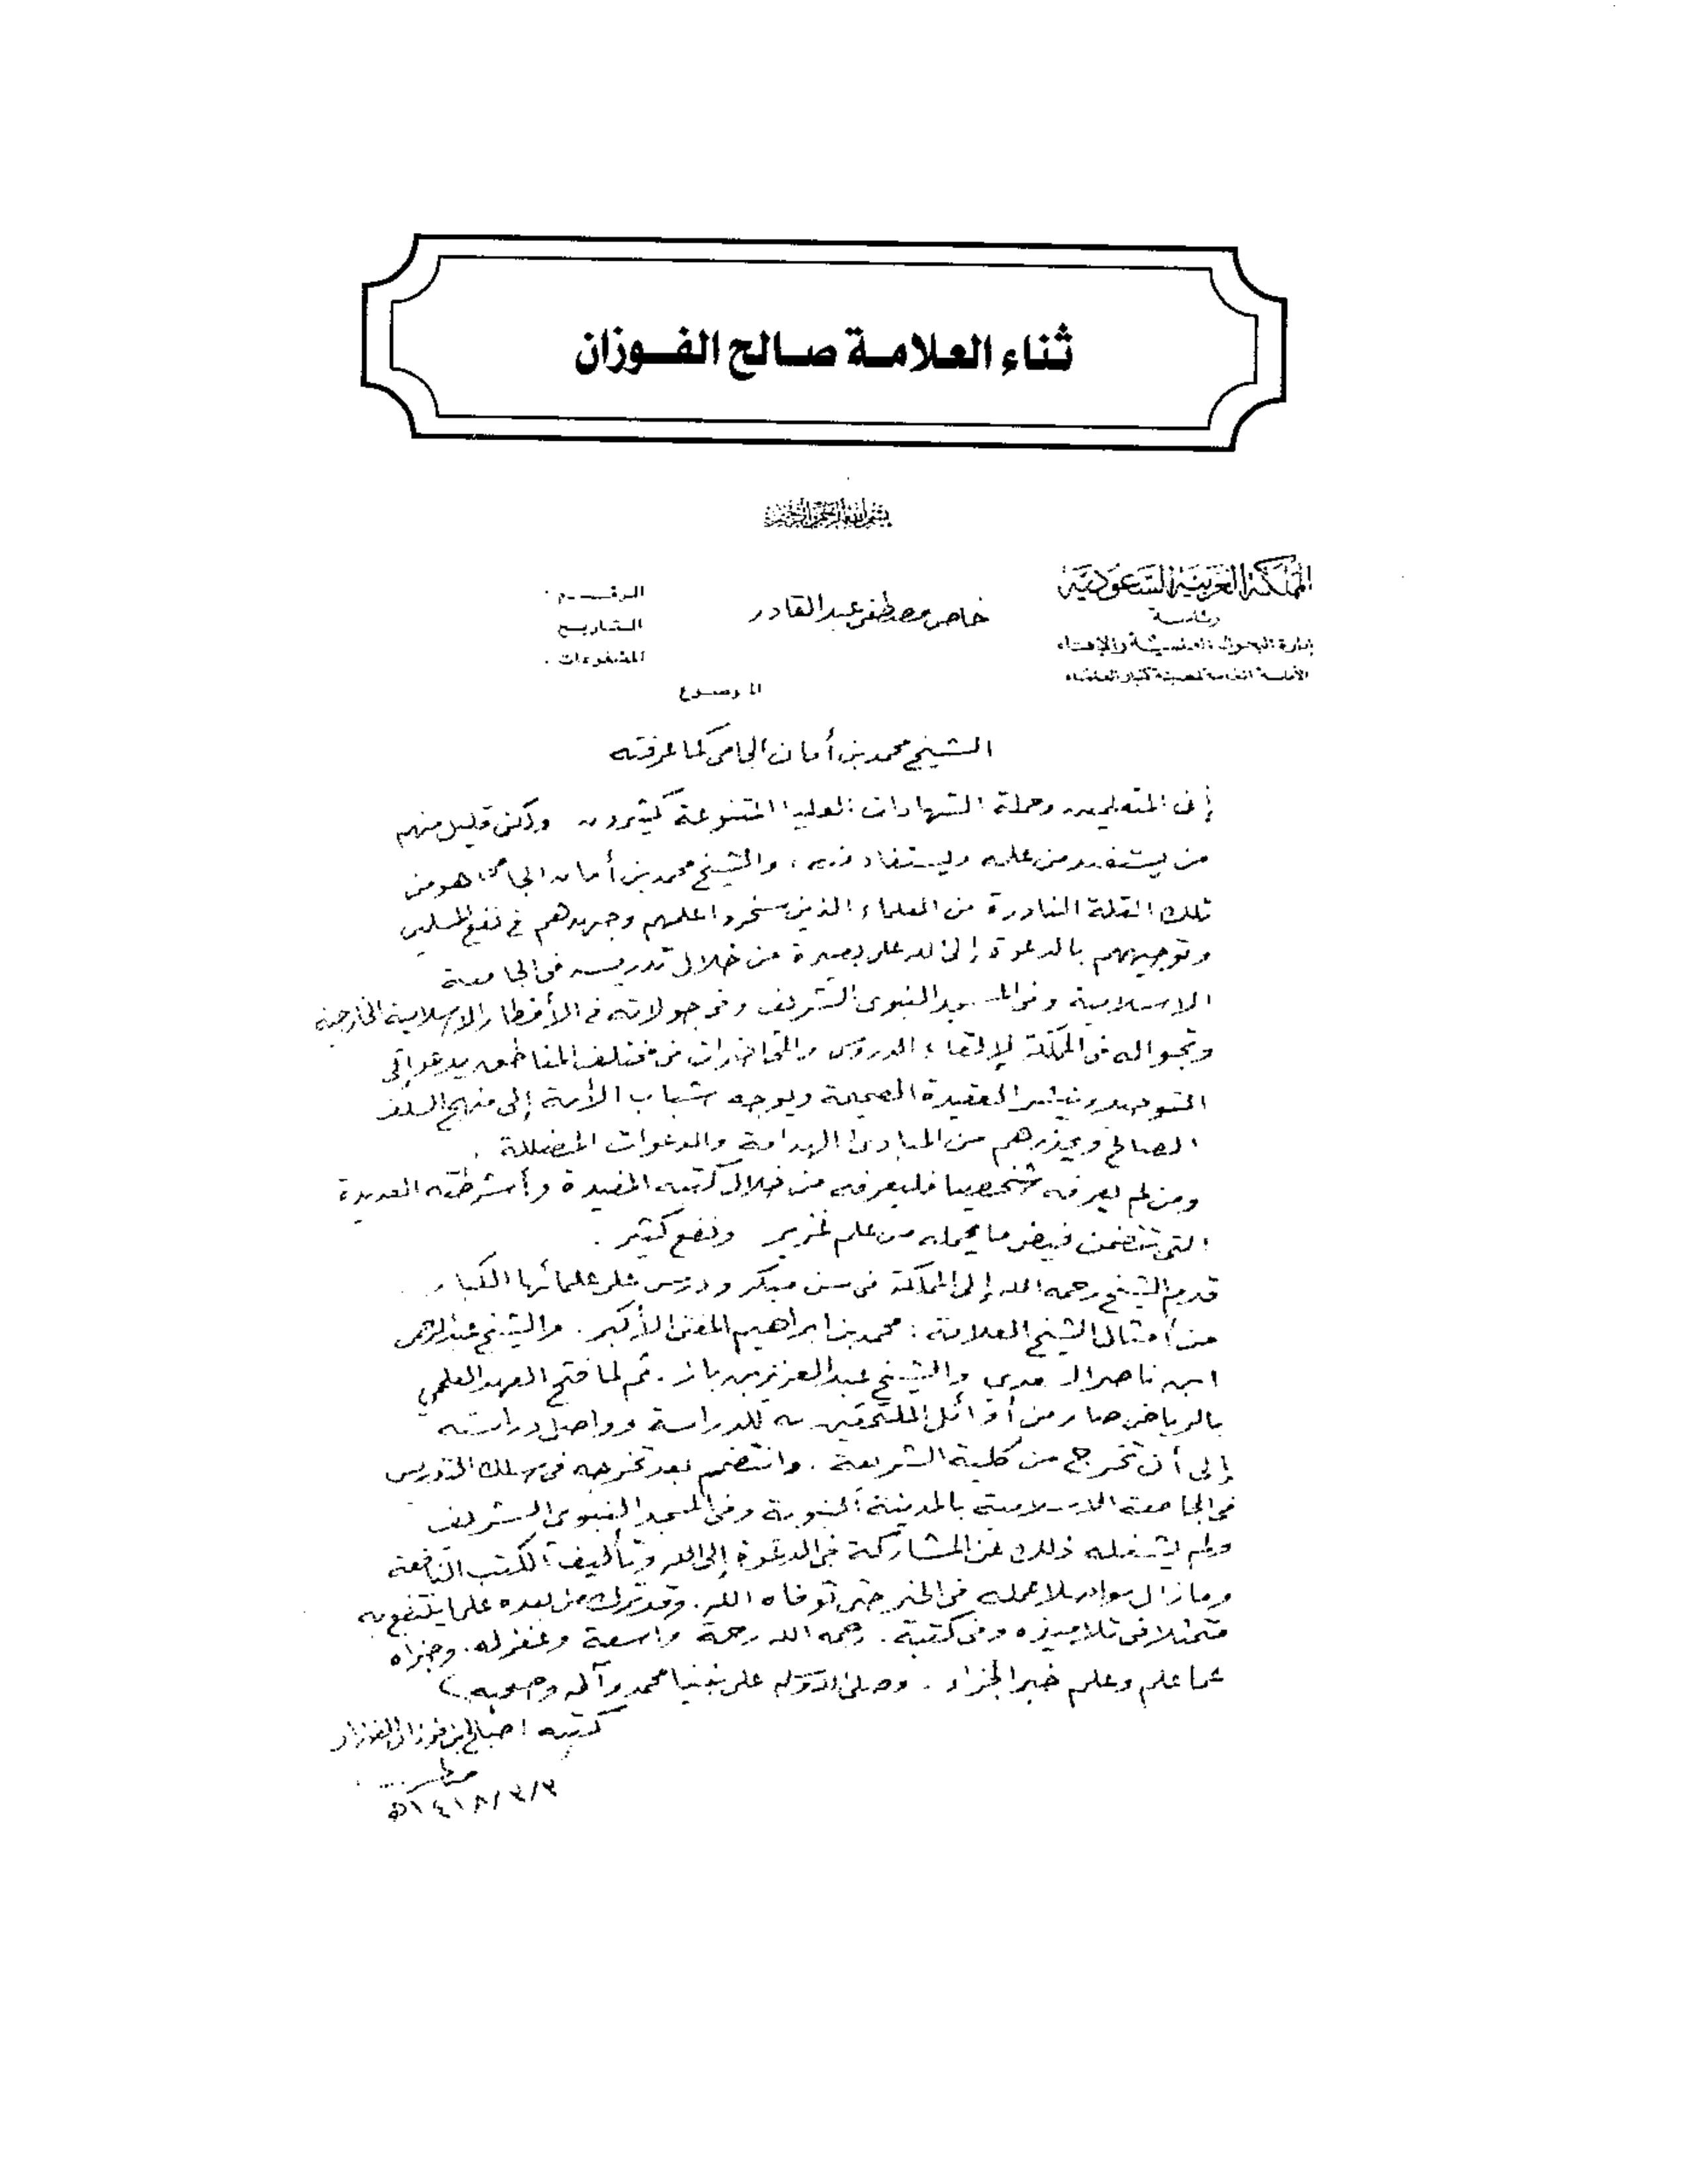 ثناء العلامة صالح الفوزان
بسم الله الرحمن الرحيم
المملكة العربية السعودية
رئاسة
إدارة البحوث العلمية والإفتاء
الأمانة العامة لهيئة كبار العلماء
خاص مصطفى عبد القادر
الرقم
التاريخ
المشفوعات
الموضوع
الشيخ محمد بن أمان الجامي كما عرفته
إن المتعلمين وحملة الشهادات العليا المتنوعة كثيرون ولكن قليل منهم
من يستفيد من علمه ويستفاد منه ، والشيخ محمد بن أمان الجامي هو من
تلك القلة النادرة من العلماء الذين سخروا علمهم وجهدهم في نفع المسلمين
وتوجيههم بالدعوة إلى الله على بصيرة من خلال تدريسه في الجامعة
الاسلامية وفي المسجد النبوي الشريف وفي جولاته في الأقطار الاسلامية الخارجية
وتجواله في المملكة لإلقاء الدروس والمحاضرات في مختلف المناطق يدعو إلى
التوحيد وينشر العقيدة الصحيحة ويوجه شباب الأمة إلى منهج السلف
الصالح ويحذرهم من المبادئ الهدامة والدعوات المضللة .
ومن لم يعرفه شخصيا فليعرفه من خلال كتبه المفيدة وأشرطته العديدة
التي تتضمن فيض ما يحمله من علم غزير ونفع كثير .
قدم الشيخ رحمه الله إلى المملكة في سن مبكر ودرس على علمائها الكبار
من أمثال الشيخ العلامة : محمد بن ابراهيم المفتي الأكبر . والشيخ عبد الرحمن
ابن ناصر السعدي والشيخ عبد العزيز بن باز . ثم لما فتح المعهد العلمي
بالرياض صار من أوائل الملتحقين به للدراسة وواصل دراسته
إلى أن تخرج من كلية الشريعة . وانتضم بعد تخرجه في سلك التدريس
في الجامعة الاسلامية بالمدينة النبوية وفي المسجد النبوي الشريف
ولم يشغله ذلك عن المشاركة في الدعوة إلى الله وتأليف الكتب النافعة
وما زال يواصل عمله في الخير حتى توفاه الله . وقد ترك من بعده علما ينتفع به
متمثلا في تلاميذه وفي كتبه . رحمه الله رحمة واسعة وغفر له . وجزاه
عما علم وعلم خير الجزاء . وصلى الله وسلم على نبينا محمد وآله وصحبه
كتبه : صالح بن فوزان الفوزان
١٤١٨/٣/٣هـ